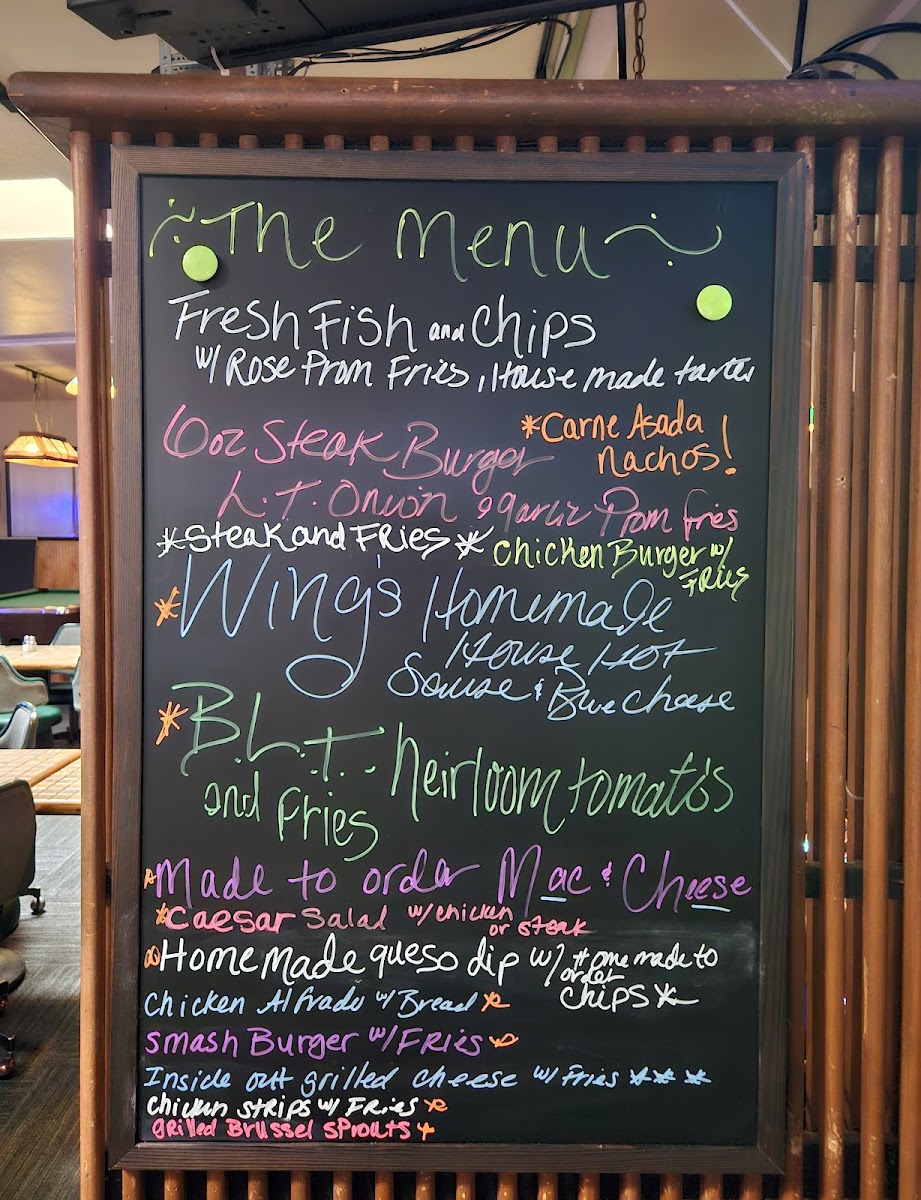 The Menu
Fresh Fish and Chips
w/ Rose Prom Fries, House made tarter
6oz Steak Burger
*Carne Asada
nachos!
L.T. Onion & garlic Prom fries
*Steak and Fries*
Chicken Burger w/
Fries
*Wing's Homemade
House Hot
Sause & Blue Cheese
*B.L.T. heirloom tomato's
and Fries
*Made to order Mac & Cheese
*Caesar Salad w/chicken
or steak
Homemade queso dip w/ Home made to
order
chips*
Chicken Alfrado w/ Bread*
Smash Burger w/ Fries
Inside out grilled cheese w/ Fries ***
chicken strips w/ Fries*
grilled Brussel sprouts*